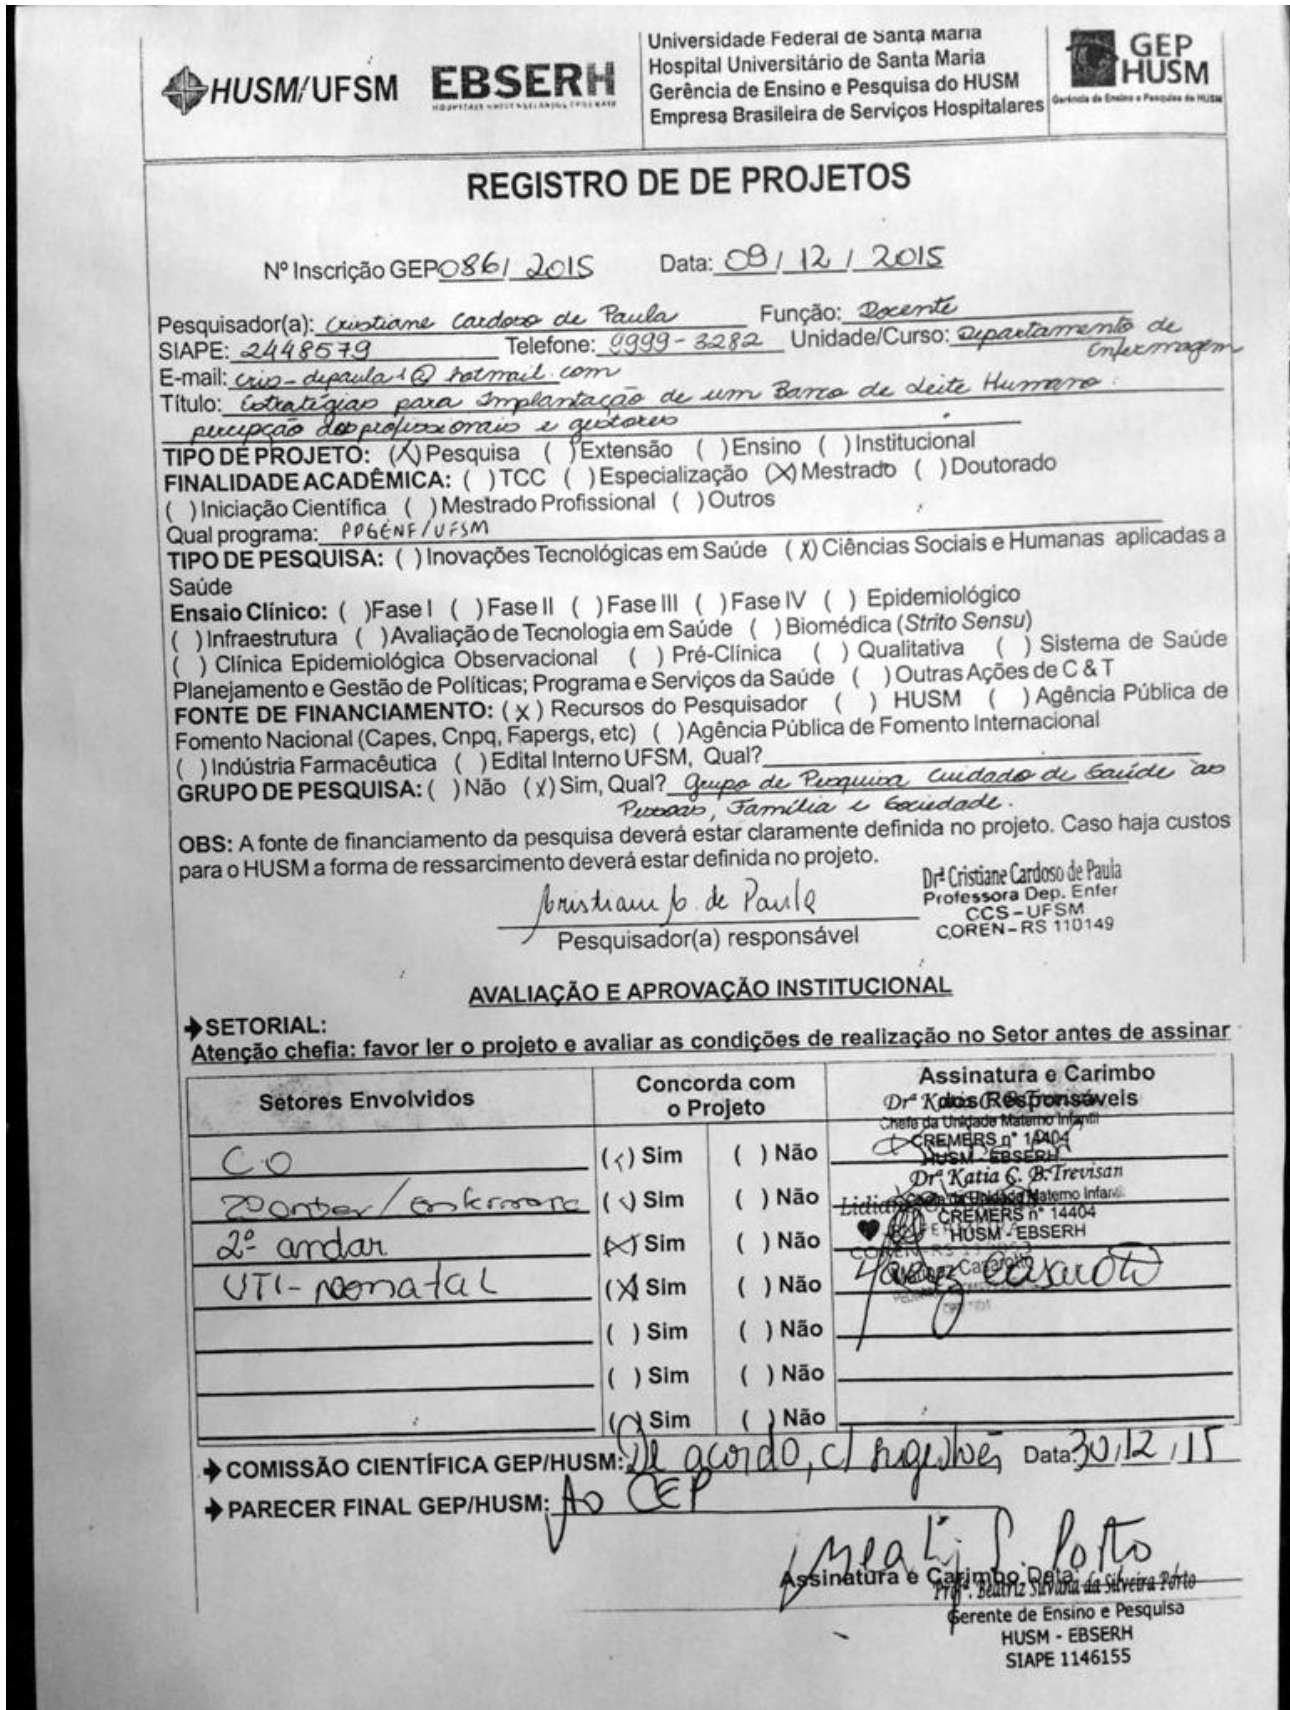 HUSM/UFSM
EBSERH
HOSPITAIS UNIVERSITÁRIOS FEDERAIS
Universidade Federal de Santa Maria
Hospital Universitário de Santa Maria
Gerência de Ensino e Pesquisa do HUSM
Empresa Brasileira de Serviços Hospitalares
GEP
HUSM
Gerência de Ensino e Pesquisa do HUSM
REGISTRO DE DE PROJETOS
Nº Inscrição GEP 086/ 2015 Data: 09 / 12 / 2015
Pesquisador(a): Cristiane Cardoso de Paula Função: Docente
SIAPE: 2448579 Telefone: 9999-3282 Unidade/Curso: Departamento de
Enfermagem
E-mail: cris-depaula1@hotmail.com
Título: Estratégias para Implantação de um Banco de Leite Humano:
percepção dos profissionais e gestores
TIPO DE PROJETO: (X) Pesquisa ( ) Extensão ( ) Ensino ( ) Institucional
FINALIDADE ACADÊMICA: ( ) TCC ( ) Especialização (X) Mestrado ( ) Doutorado
( ) Iniciação Científica ( ) Mestrado Profissional ( ) Outros
Qual programa: PPGENF/UFSM
TIPO DE PESQUISA: ( ) Inovações Tecnológicas em Saúde (X) Ciências Sociais e Humanas aplicadas a
Saúde
Ensaio Clínico: ( ) Fase I ( ) Fase II ( ) Fase III ( ) Fase IV ( ) Epidemiológico
( ) Infraestrutura ( ) Avaliação de Tecnologia em Saúde ( ) Biomédica (Strito Sensu)
( ) Clínica Epidemiológica Observacional ( ) Pré-Clínica ( ) Qualitativa ( ) Sistema de Saúde
Planejamento e Gestão de Políticas; Programa e Serviços da Saúde ( ) Outras Ações de C & T
FONTE DE FINANCIAMENTO: (X) Recursos do Pesquisador ( ) HUSM ( ) Agência Pública de
Fomento Nacional (Capes, Cnpq, Fapergs, etc) ( ) Agência Pública de Fomento Internacional
( ) Indústria Farmacêutica ( ) Edital Interno UFSM, Qual?
GRUPO DE PESQUISA: ( ) Não (X) Sim, Qual? Grupo de Pesquisa Cuidado de Saúde às
Pessoas, Família e Sociedade.
OBS: A fonte de financiamento da pesquisa deverá estar claramente definida no projeto. Caso haja custos
para o HUSM a forma de ressarcimento deverá estar definida no projeto.
Cristiane C. de Paula
Pesquisador(a) responsável
Drª Cristiane Cardoso de Paula
Professora Dep. Enfer
CCS-UFSM
COREN-RS 110149
AVALIAÇÃO E APROVAÇÃO INSTITUCIONAL
➔SETORIAL:
Atenção chefia: favor ler o projeto e avaliar as condições de realização no Setor antes de assinar
Setores Envolvidos Concorda com o Projeto Assinatura e Carimbo dos Responsáveis
Chefe da Unidade Materno Infantil
CREMERS nº 14404
HUSM - EBSERH
CO (X) Sim ( ) Não
Drª Katia C. B. Trevisan
Chefe da Unidade Materno Infantil
CREMERS nº 14404
HUSM - EBSERH
2º andar / (X) Sim ( ) Não
2º andar (X) Sim ( ) Não
UTI-neonatal (X) Sim ( ) Não Casarotto
( ) Sim ( ) Não
( ) Sim ( ) Não
( ) Sim ( ) Não
➔COMISSÃO CIENTÍFICA GEP/HUSM: De acordo, c/ sugestões Data: 30/12/15
➔PARECER FINAL GEP/HUSM: Ao CEP
Porto
Assinatura e Carimbo Data:
Profª. Beatriz Silvana da Silveira Porto
Gerente de Ensino e Pesquisa
HUSM - EBSERH
SIAPE 1146155